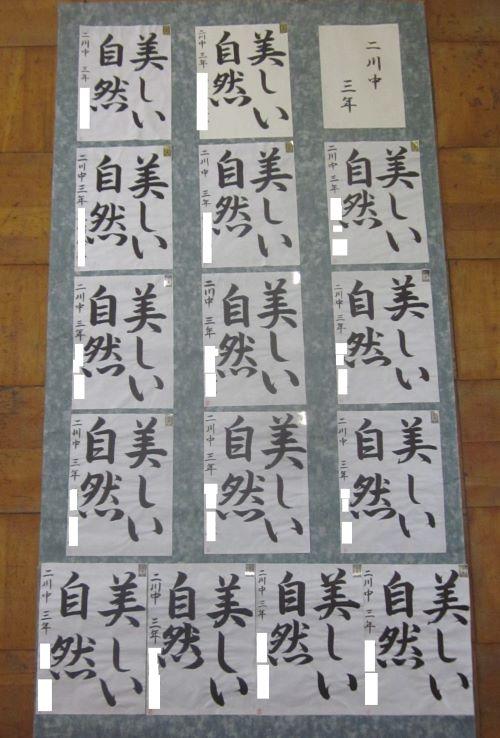 二川中
三年
美しい
自然
二川中 三年
美しい
自然
二川中 三年
美しい
自然
二川中 三年
美しい
自然
二川中 三年
美しい
自然
二川中 三年
美しい
自然
二川中 三年
美しい
自然
二川中 三年
美しい
自然
二川中 三年
美しい
自然
二川中 三年
美しい
自然
二川中 三年
美しい
自然
二川中 三年
美しい
自然
二川中 三年
美しい
自然
二川中 三年
美しい
自然
二川中 三年
美しい
自然
二川中 三年